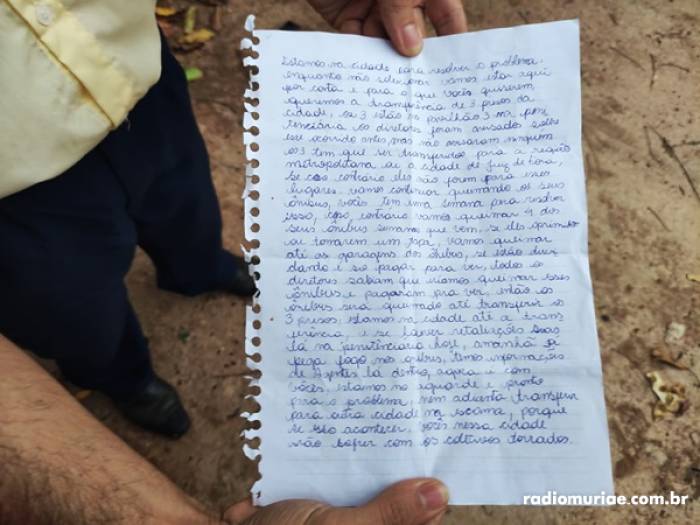 Estamos na cidade para resolver o problema,
enquanto não solucionar vamos estar aqui
por conta e para o que vocês quiserem
queremos a transferência de 3 presos da
cidade, os 3 estão no pavilhão 3 na peni
tenciária os diretores foram avisados sobre
esse ocorrido antes, mas não avisaram ninguém
os 3 tem que ser transferidos para a região
metropolitana ou a cidade de juiz de fora,
se caso contrário eles não forem para esses
lugares vamos continuar queimando os seus
ônibus, vocês tem uma semana para resolver
isso, caso contrário vamos queimar 4 dos
seus ônibus semana que vem, se eles oprimir
ou tomarem um tapa, vamos queimar
até as garagens dos ônibus, se estão duvi
dando é só pagar para ver, todos os
diretores sabiam que iríamos queimar esses
ônibus e pagaram pra ver, então os
ônibus será queimado até transferir os
3 presos, estamos na cidade até a trans
ferência, e se haver retaliações
lá na penitenciária hoje, amanhã já
pega fogo nos ônibus, temos informações
de Agentes lá dentro, agora é com
vocês. estamos no aguardo e pronto
para o problema nem adianta transferir
para outra cidade na escama, porque
se isso acontecer. vocês nessa cidade
vão sofrer com os coletivos torrados.
radiomuriae.com.br